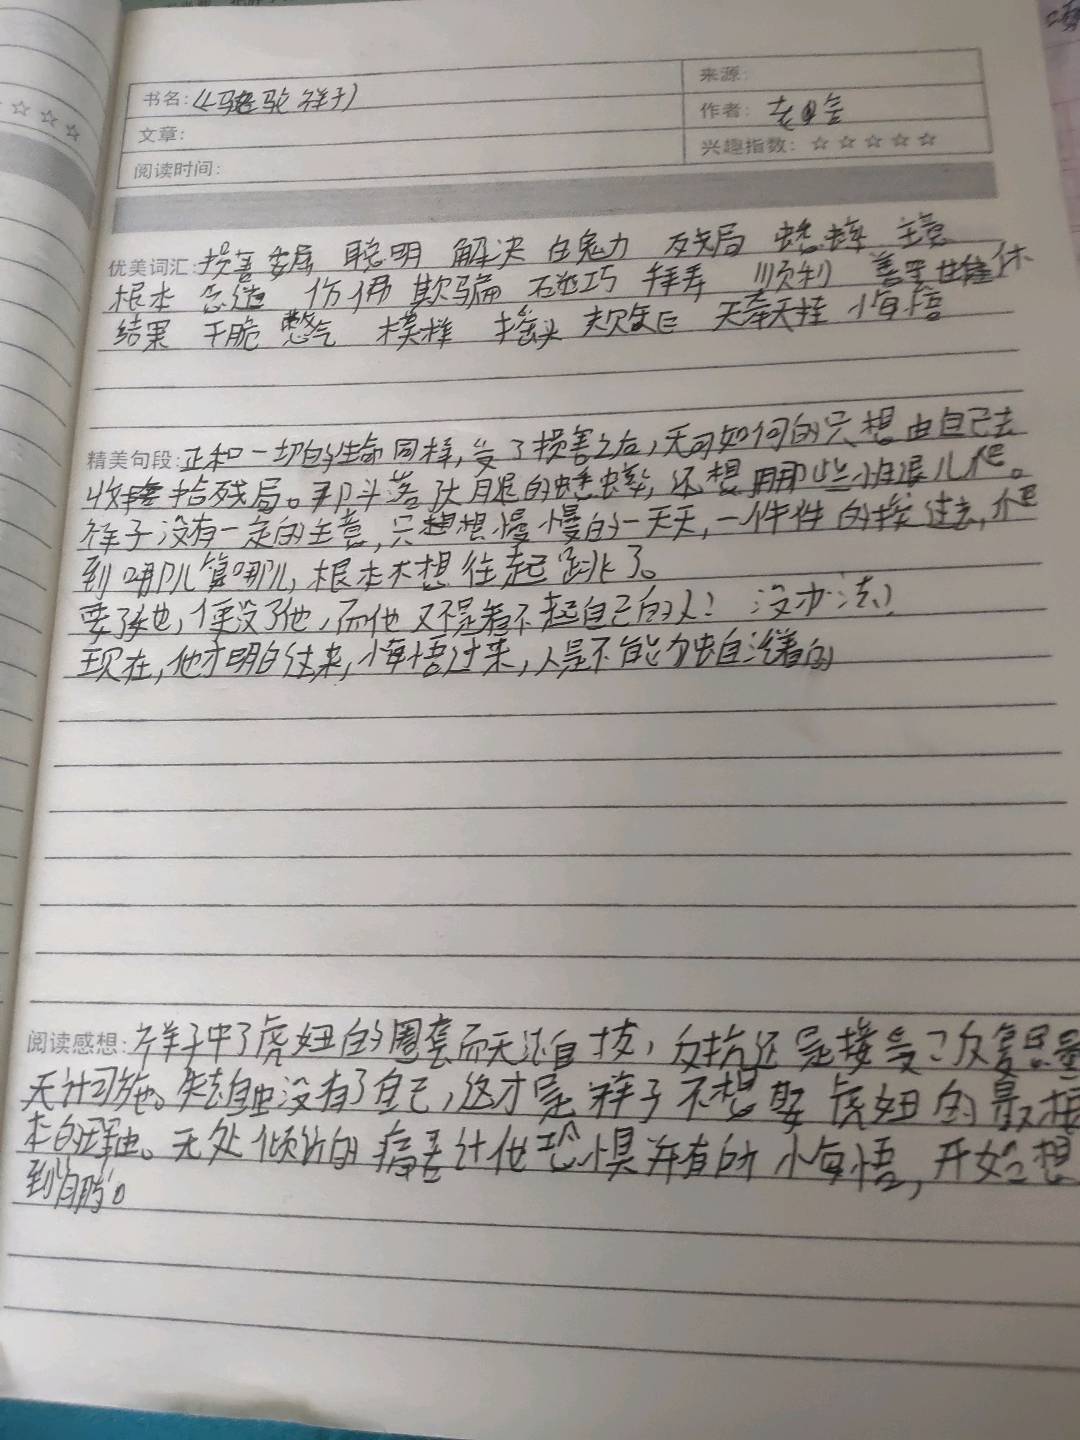 书名:《骆驼祥子》
来源:
作者: 老舍
文章:
兴趣指数: ☆☆☆☆☆
阅读时间:
优美词汇: 损害 委屈 聪明 解决 自鬼力 残局 蟋蟀 主意
根本 伎俩 欺骗 碰巧 拜寿 顺利 善罢甘休
结果 干脆 憋气 模样 摇头 天奉天桂 悔悟
精美句段: 正和一切的生命同样,受了损害之后,无可如何的只想由自己去
收拾残局。那斗落大腿的蟋蟀,还想用那些小腿儿爬。
祥子没有一定的主意,只想慢慢的一天天,一件件的挨过去,爬
到哪儿算哪儿,根本不想往起跳了。
要了她,便没了他,而他又不是看不起自己的人!没办法!
现在,他才明白过来,悔悟过来,人是不能独自活着的
阅读感想: 祥子中了虎妞的圈套而无法自拔,反抗还是接受?反复思量
无计可施。失去自由没有了自己,这才是祥子不想娶虎妞的最根
本的理由。无处倾诉的痛苦让他恐惧并有所悔悟,开始想
到